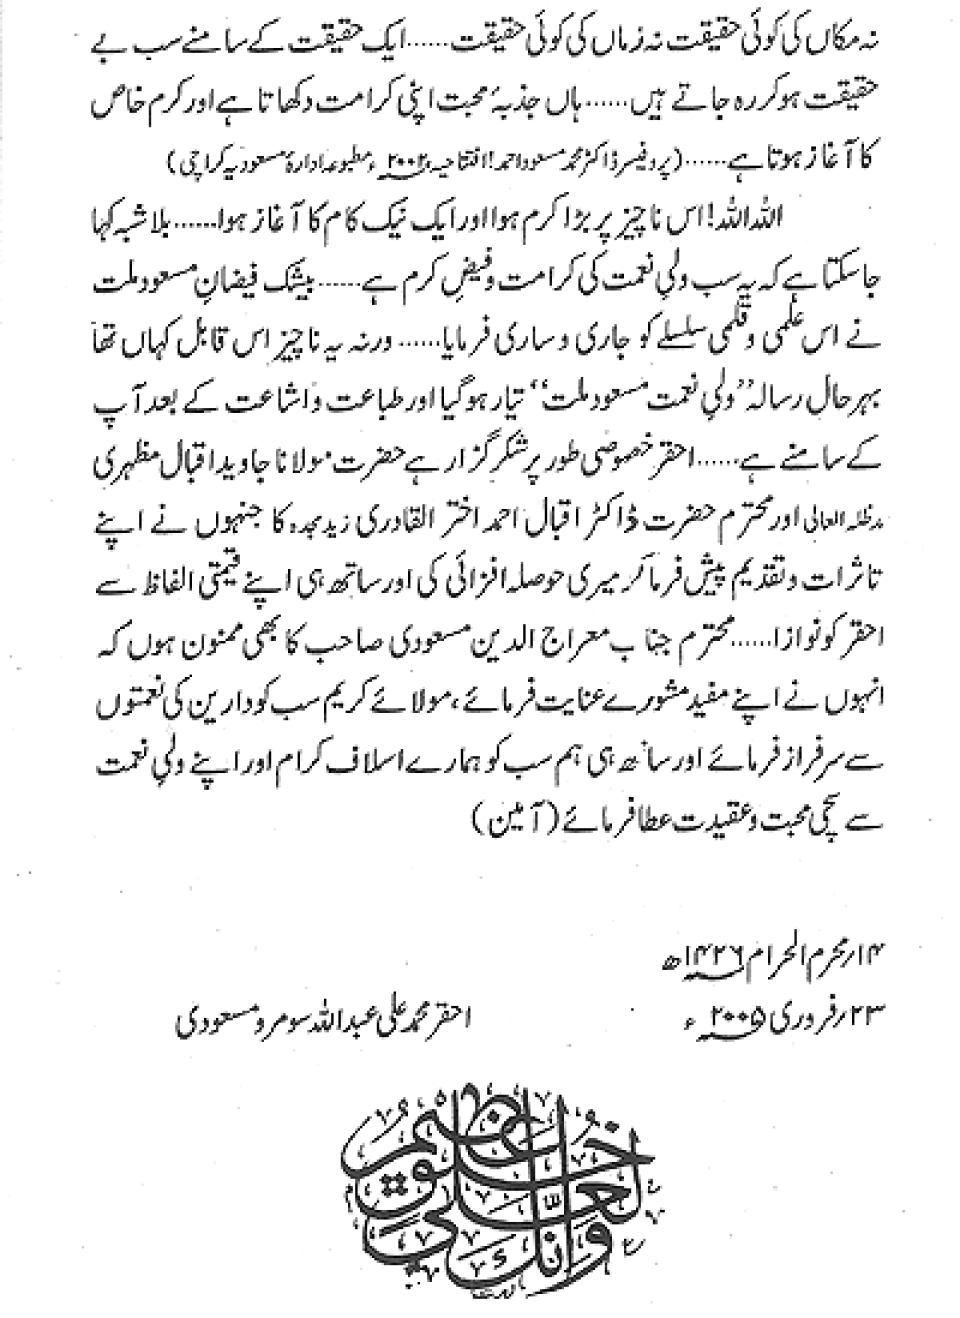 نہ مکاں کی کوئی حقیقت نہ زماں کی کوئی حقیقت......ایک حقیقت کے سامنے سب بے
حقیقت ہو کر رہ جاتے ہیں......ہاں جذبۂ محبت اپنی کرامت دکھاتا ہے اور کرم خاص
کا آغاز ہوتا ہے......(پروفیسر ڈاکٹر محمد مسعود احمد! افتتاحیہ، ۲۰۰۲ء مطبوعہ ادارۂ مسعودیہ کراچی)
اللہ اللہ! اس ناچیز پر بڑا کرم ہوا اور ایک نیک کام کا آغاز ہوا......بلا شبہ کہا
جا سکتا ہے کہ یہ سب ولیِ نعمت کی کرامت و فیضِ کرم ہے......بیشک فیضانِ مسعود ملت
نے اس علمی و قلمی سلسلے کو جاری و ساری فرمایا......ورنہ یہ ناچیز اس قابل کہاں تھا
بہرحال رسالہ ”ولیِ نعمت مسعود ملت“ تیار ہو گیا اور طباعت و اشاعت کے بعد آپ
کے سامنے ہے......احقر خصوصی طور پر شکر گزار ہے حضرت مولانا جاوید اقبال مظہری
مدظلہ العالی اور محترم حضرت ڈاکٹر اقبال احمد اختر القادری زید مجدہ کا جنہوں نے اپنے
تاثرات و تقدیم پیش فرما کر میری حوصلہ افزائی کی اور ساتھ ہی اپنے قیمتی الفاظ سے
احقر کو نوازا......محترم جناب معراج الدین مسعودی صاحب کا بھی ممنون ہوں کہ
انہوں نے اپنے مفید مشورے عنایت فرمائے، مولائے کریم سب کو دارین کی نعمتوں
سے سرفراز فرمائے اور ساتھ ہی ہم سب کو ہمارے اسلاف کرام اور اپنے ولیِ نعمت
سے سچی محبت و عقیدت عطا فرمائے (آمین)
۱۴؍محرم الحرام ۱۴۲۶ھ
۲۳؍فروری ۲۰۰۵ء
احقر محمد علی عبداللہ سومرو مسعودی
وَإِنَّكَ لَعَلَىٰ خُلُقٍ عَظِيمٍ